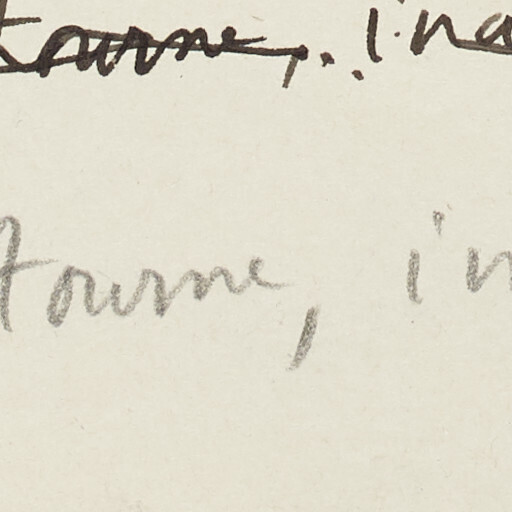 tourne, ina
tourne, in